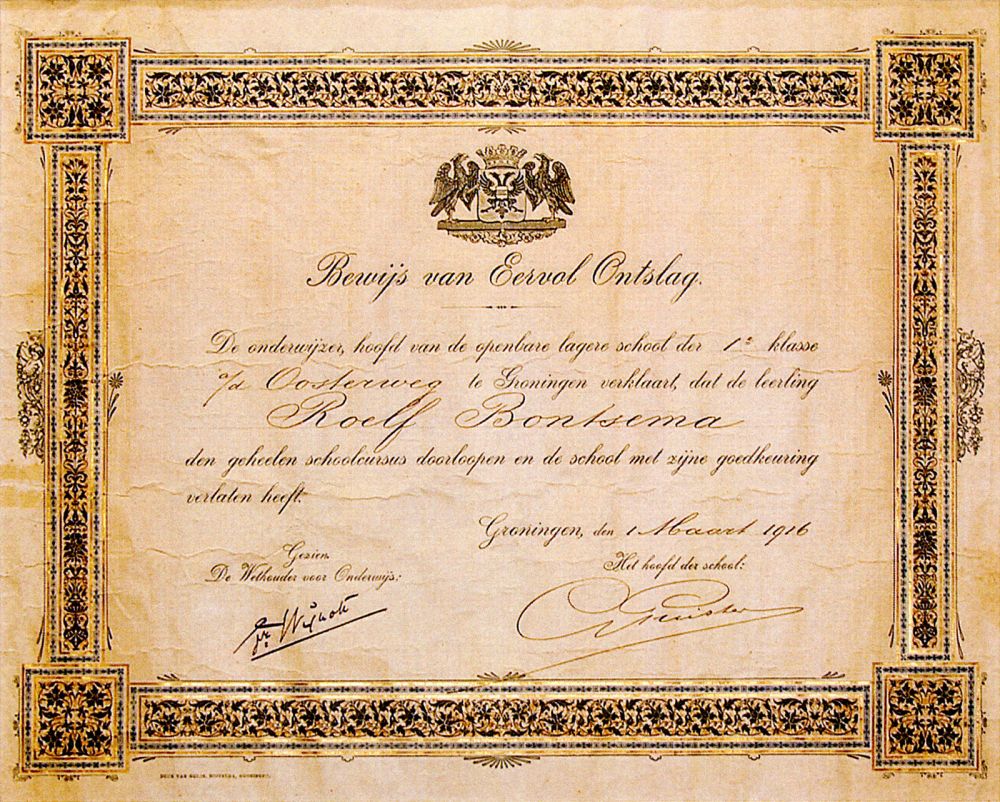 Bewijs van Eervol Ontslag.
De onderwijzer, hoofd van de openbare lagere school der 1e klasse
a/d Oosterweg te Groningen verklaart, dat de leerling
Roelf Bontsema
den geheelen schoolcursus doorloopen en de school met zijne goedkeuring
verlaten heeft.
Groningen, den 1 Maart 1916
Gezien,
De Wethouder voor Onderwijs:
Het hoofd der school:
DRUK VAN